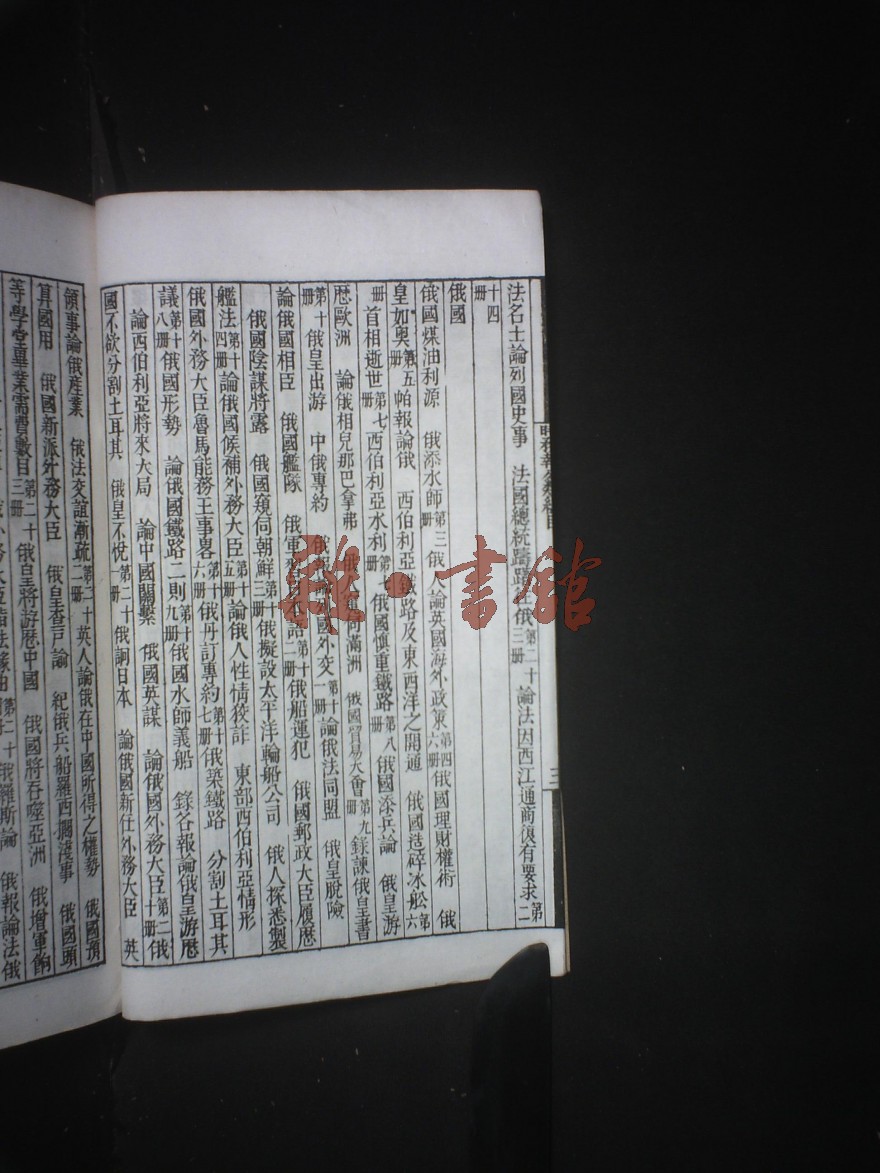 法名士論列國史事　法國總統躊躇往俄第二十三册　論法因西江通商復有要求第二
十四册
俄國
俄國煤油利源　俄添水師第三册　俄人論英國海外政策第四六册俄國理財權術　俄
皇如奧第五册　帕報論俄　西伯利亞鐵路及東西洋之開通　俄國造碎冰舩第六
册　首相逝世第七册西伯利亞水利　俄國慎重鐵路第八册俄國添兵論　俄皇游
歷歐洲　論俄相兒那巴拿弗　俄人　向滿洲　俄國貿易大會第九册錄諫俄皇書
第十册　俄皇出游　中俄專約　俄　國外交第十一册論俄法同盟　俄皇脫險
論俄國相臣　俄國艦隊　俄軍　語第十二册俄船運犯　俄國郵政大臣履歷
俄國陰謀將露　俄國窺伺朝鮮第十三册俄擬設太平洋輪船公司　俄人探悉製
艦法第十四册論俄國候補外務大臣第十五册論俄人性情狡詐　東部西伯利亞情形
俄國外務大臣魯馬能務王事畧第十六册俄丹訂專約第十七册俄築鐵路　分割土耳其
議第十八册俄國形勢　論俄國鐵路二則第十九册俄國水師義船　錄各報論俄皇游歷
論西伯利亞將來大局　論中國關繫　俄國英謀　論俄國外務大臣第二十册俄
國不欲分割土耳其　俄皇不悅第二十一册俄詗日本　論俄國新任外務大臣　英
領事論俄產業　俄法交誼漸疏第二十二册英人論俄在中國所得之權勢　俄國預
算國用　俄國新派外務大臣　俄皇查戶論　紀俄兵船羅西擱淺事　俄國頭
等學堂畢業需費數目第二十三册俄皇將游歷中國　俄國將吞噬亞洲　俄增軍餉
第二十　俄羅斯論　俄報論法俄
時務報分類總目
三
雜·書館